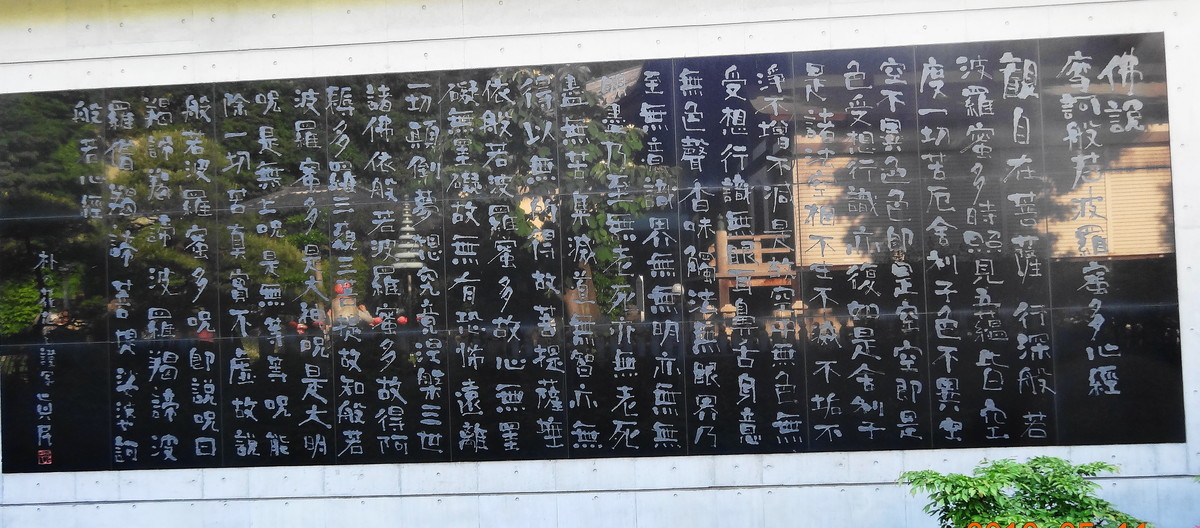 佛說
摩訶般若波羅蜜多心經
觀自在菩薩行深般若
波羅蜜多時照見五蘊皆空
度一切苦厄舍利子色不異空
空不異色色卽是空空卽是
色受想行識亦復如是舍利子
是諸法空相不生不滅不垢不
淨不增不減是故空中無色無
受想行識無眼耳鼻舌身意
無色聲香味觸法無眼界乃
至無意識界無無明亦無無
明盡乃至無老死亦無老死
盡無苦集滅道無智亦無
得以無所得故菩提薩埵
依般若波羅蜜多故心無罣
礙無罣礙故無有恐怖遠離
一切顚倒夢想究竟涅槃三世
諸佛依般若波羅蜜多故得阿
耨多羅三藐三菩提故知般若
波羅蜜多是大神呪是大明
呪是無上呪是無等等呪能
除一切苦眞實不虛故說
般若波羅蜜多呪卽說呪曰
揭諦揭諦波羅揭諦波
羅僧揭諦菩提娑婆訶
般若心經
朴